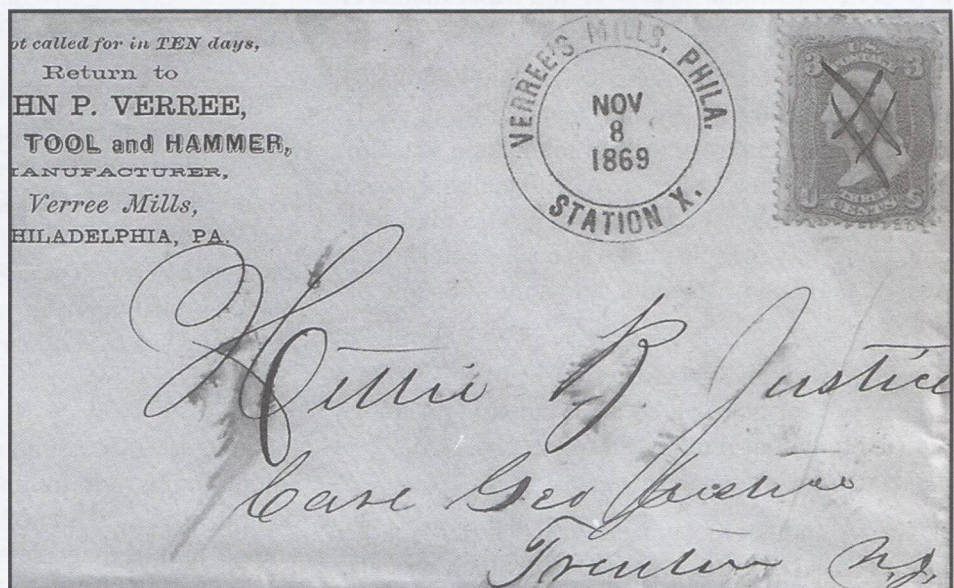 ot called for in TEN days,
Return to
HN P. VERREE,
TOOL and HAMMER,
MANUFACTURER,
Verree Mills,
HILADELPHIA, PA.
VERREE'S MILLS, PHILA.
NOV
8
1869
STATION X.
3 U.S. POSTAGE 3
CENTS
Hettie B Justice
Care Geo Justice
Trenton N.J.